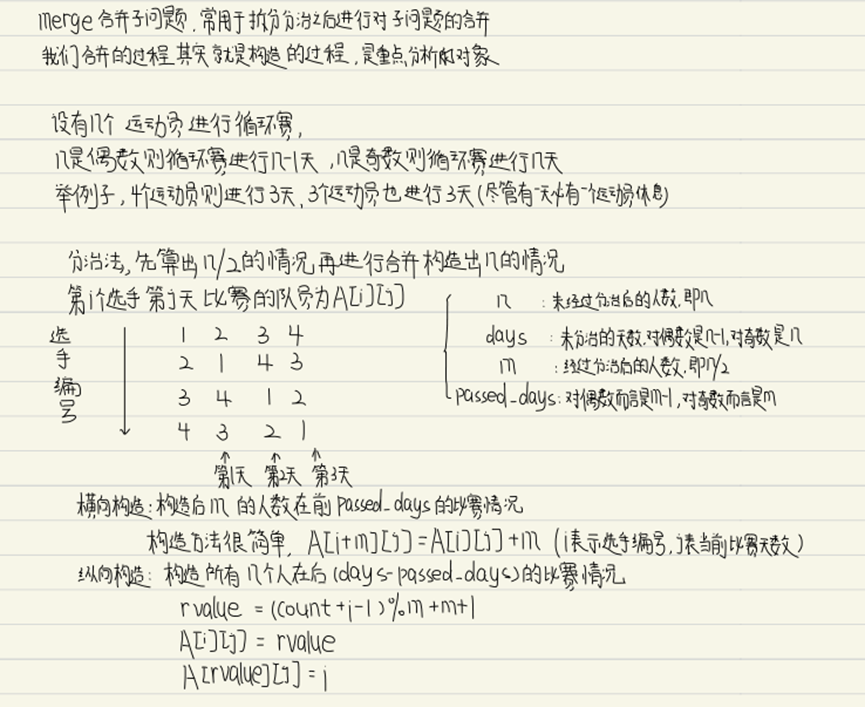 merge 合并子问题，常用于拆分分治之后进行对子问题的合并
我们合并的过程其实就是构造的过程，是重点分析的对象
设有n个 运动员进行循环赛，
n是偶数则循环赛进行n-1天，n是奇数则循环赛进行n天
举例子，4个运动员则进行3天，3个运动员也进行3天(尽管有一天必有一个运动员休息)
分治法，先算出n/2的情况再进行合并构造出n的情况
第i个选手第j天比赛的队员为A[i][j]
n : 未经过分治后的人数，即n
days : 未分治的天数，对偶数是n-1，对奇数是n
m : 经过分治后的人数，即n/2
passed_days: 对偶数而言是m-1，对奇数而言是m
选手编号
1 2 3 4
2 1 4 3
3 4 1 2
4 3 2 1
第1天 第2天 第3天
横向构造：构造后m的人数在前passed_days的比赛情况
构造方法很简单，A[i+m][j]=A[i][j]+m (i表示选手编号，j表当前比赛天数)
纵向构造：构造所有n个人在后(days-passed_days)的比赛情况
rvalue = (count+i-1)%m+m+1
A[i][j] = rvalue
A[rvalue][j] = i